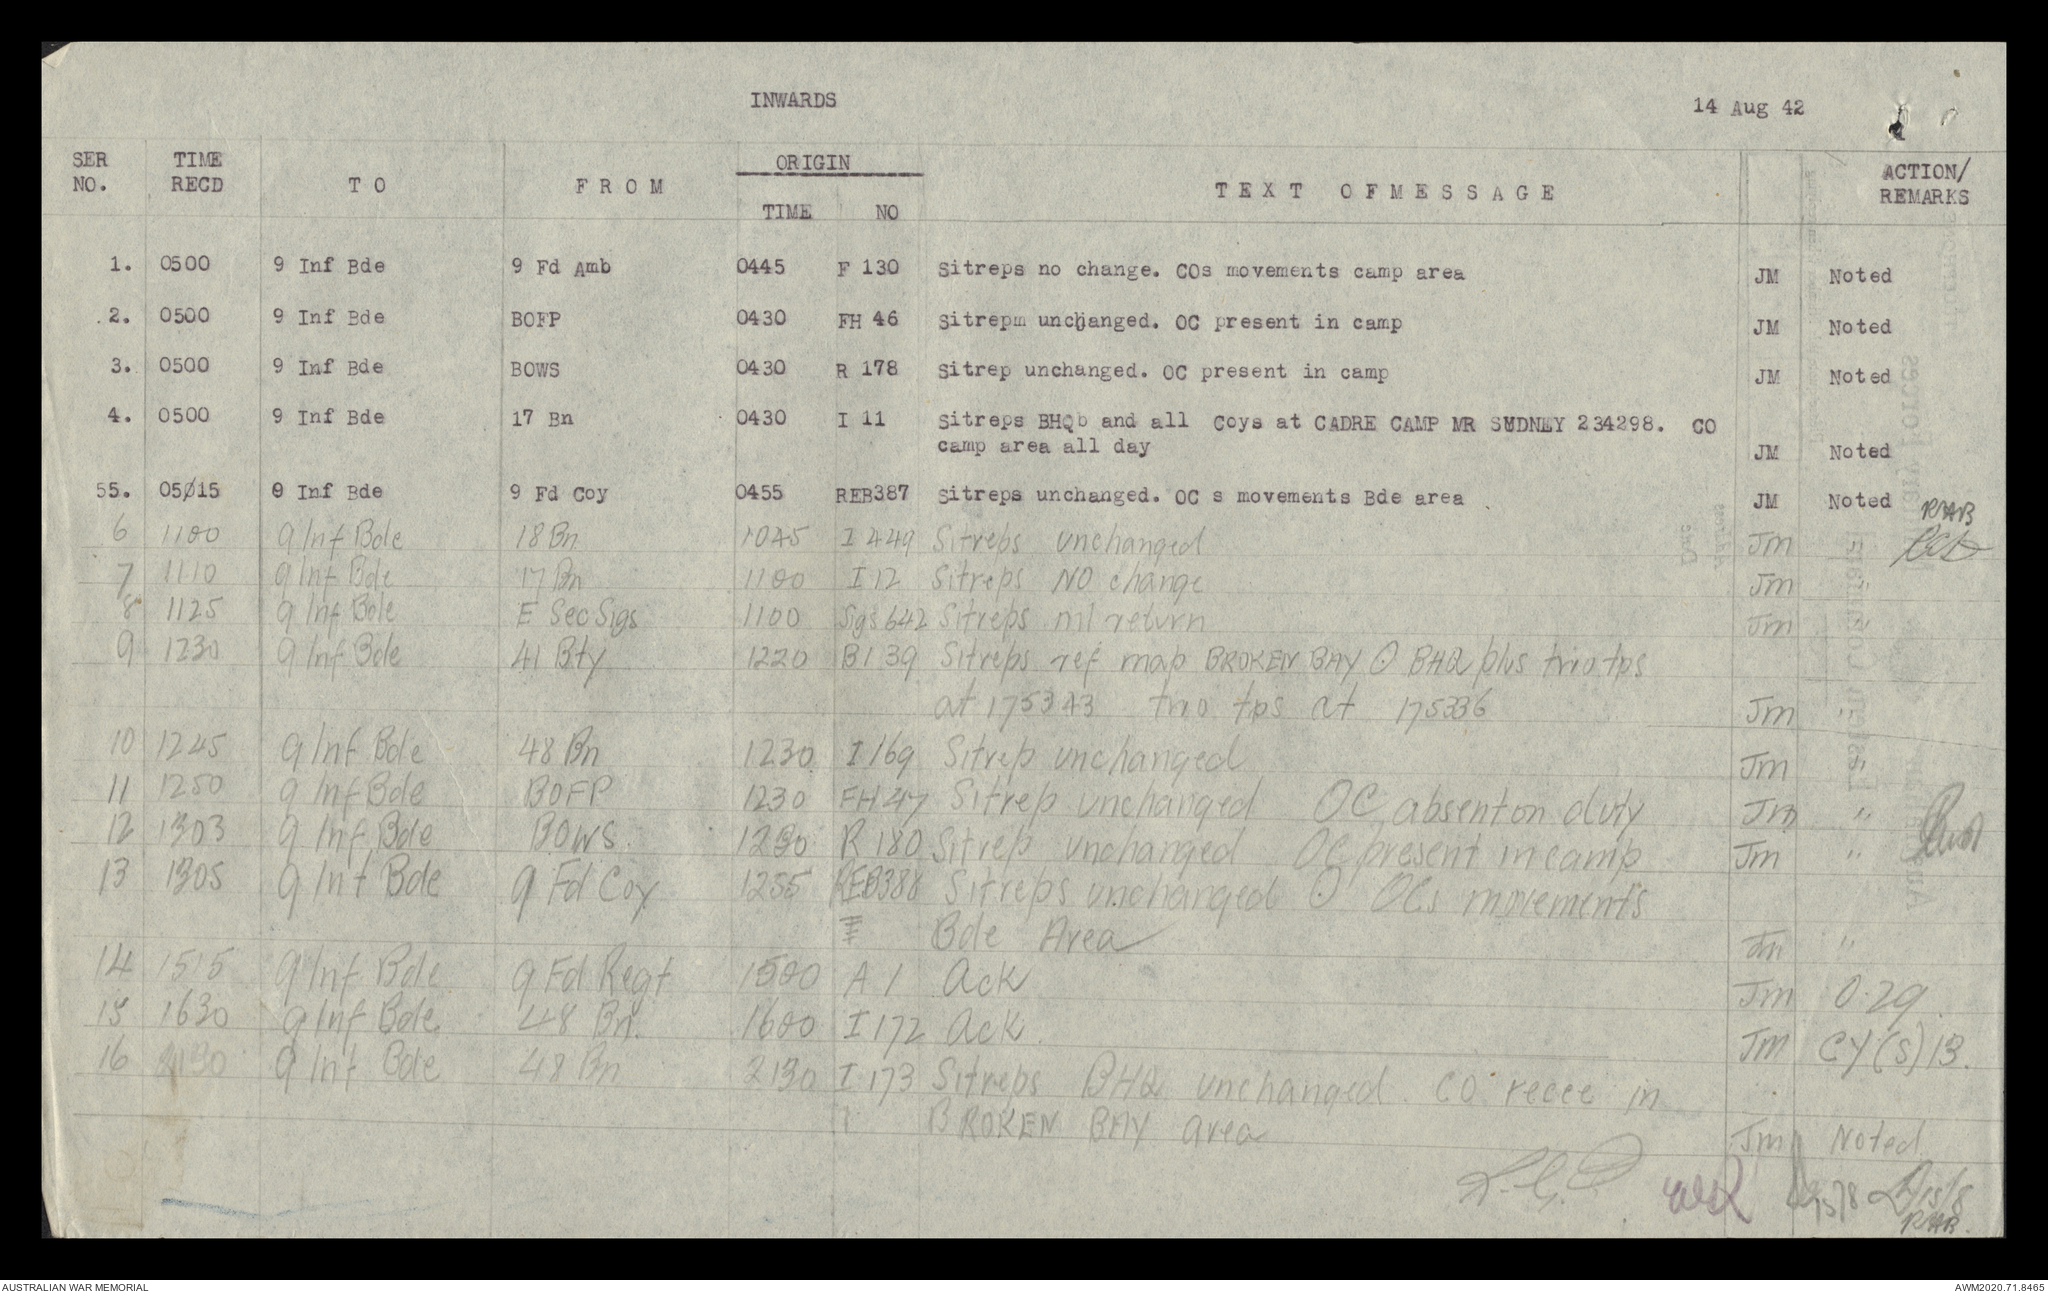 INWARDS
14 Aug 42
SER NO. TIME RECD T O F R O M ORIGIN TIME NO T E X T O F M E S S A G E ACTION/ REMARKS
1. 0500 9 Inf Bde 9 Fd Amb 0445 F 130 Sitreps no change. COs movements camp area JM Noted
2. 0500 9 Inf Bde BOFP 0430 FH 46 Sitrepm unchanged. OC present in camp JM Noted
3. 0500 9 Inf Bde BOWS 0430 R 178 Sitrep unchanged. OC present in camp JM Noted
4. 0500 9 Inf Bde 17 Bn 0430 I 11 Sitreps BHQb and all Coys at CADRE CAMP MR SUDNEY 234298. CO
camp area all day JM Noted
55. 05015 9 Inf Bde 9 Fd Coy 0455 REB387 Sitreps unchanged. OC s movements Bde area JM Noted
RMB
6 1100 9 Inf Bde 18 Bn 1045 I 449 Sitreps unchanged Jm
7 1110 9 Inf Bde 17 Bn 1100 I 12 Sitreps NO change Jm "
8 1125 9 Inf Bde E Sec Sigs 1100 Sigs 642 Sitreps nil return Jm "
9 1230 9 Inf Bde 41 Bty 1220 B139 Sitreps ref map BROKEN BAY ⊙ BHQ plus two tps
at 175343 two tps at 175336 Jm "
10 1245 9 Inf Bde 48 Bn 1230 I 169 Sitrep unchanged Jm "
11 1250 9 Inf Bde BOFP 1230 FH 47 Sitrep unchanged OC absent on duty Jm "
12 1303 9 Inf Bde BOWS. 1230 R 180 Sitrep unchanged OC present in camp Jm "
13 1305 9 Inf Bde 9 Fd Coy 1255 REB388 Sitreps unchanged ⊙ OCs movements
Bde Area Jm "
14 1515 9 Inf Bde 9 Fd Regt 1500 A 1 Ack Jm O.29.
15 1630 9 Inf Bde. 48 Bn. 1600 I 172 Ack. Jm CY(S)13.
16 2130 9 Inf Bde 48 Bn 2130 I 173 Sitreps BHQ unchanged. CO recce in
BROKEN BAY area Jm Noted
15/8 15/8
RMB.
AUSTRALIAN WAR MEMORIAL
AWM2020.71.8465